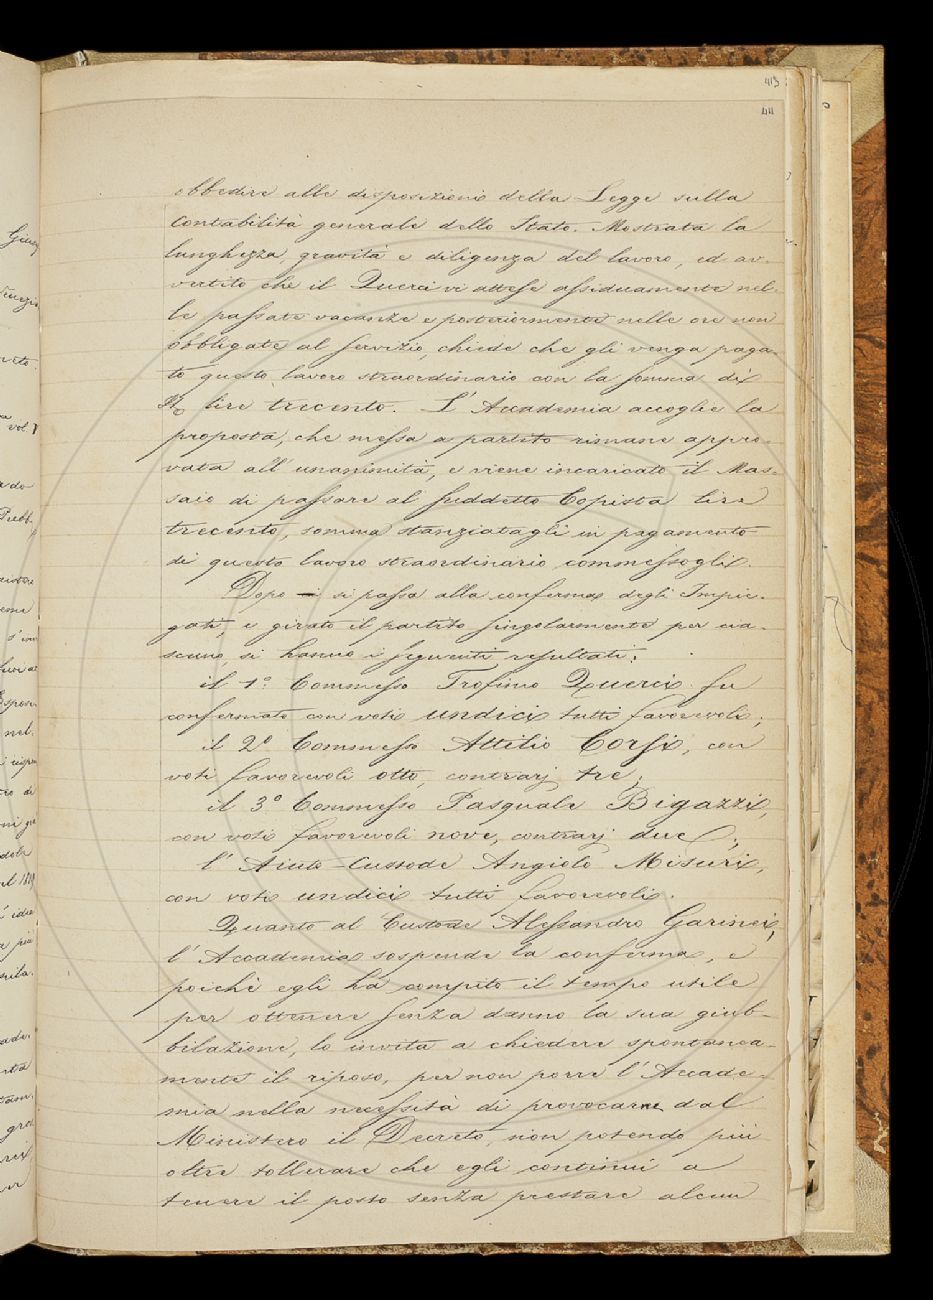 413
411
obbedire alle disposizioni della Legge sulla
contabilità generale dello Stato. Mostrata la
lunghezza, gravità e diligenza del lavoro, ed av-
vertito che il Querci vi attese assiduamente nel-
le passate vacanze e posteriormente nelle ore non
obbligate al servizio, chiede che gli venga paga-
to questo lavoro straordinario con la somma di
lire trecento. L'Accademia accoglie la
proposta, che messa a partito rimane appro-
vata all'unanimità, e viene incaricato il Mas-
saio di passare al suddetto Copista lire
trecento, somma stanziatagli in pagamento
di questo lavoro straordinario commessogli.
Dopo si passa alla conferma degli Impie-
gati, e girato il partito singolarmente per cia-
scuno, si hanno i seguenti resultati:
il 1º Commesso Trofimo Querci fu
confermato con voti undici tutti favorevoli;
il 2º Commesso Attilio Corsi, con
voti favorevoli otto, contrarj tre;
il 3º Commesso Pasquale Bigazzi,
con voti favorevoli nove, contrarj due;
l'Aiuto-Custode Angiolo Misuri,
con voti undici tutti favorevoli.
Quanto al Custode Alessandro Garinei,
l'Accademia sospende la conferma, e
poichè egli ha compito il tempo utile
per ottenere senza danno la sua giub-
bilazione, lo invita a chiedere spontanea-
mente il riposo, per non porre l'Accade-
mia nella necessità di provocarne dal
Ministero il Decreto, non potendo più
oltre tollerare che egli continui a
tenere il posto senza prestare alcun